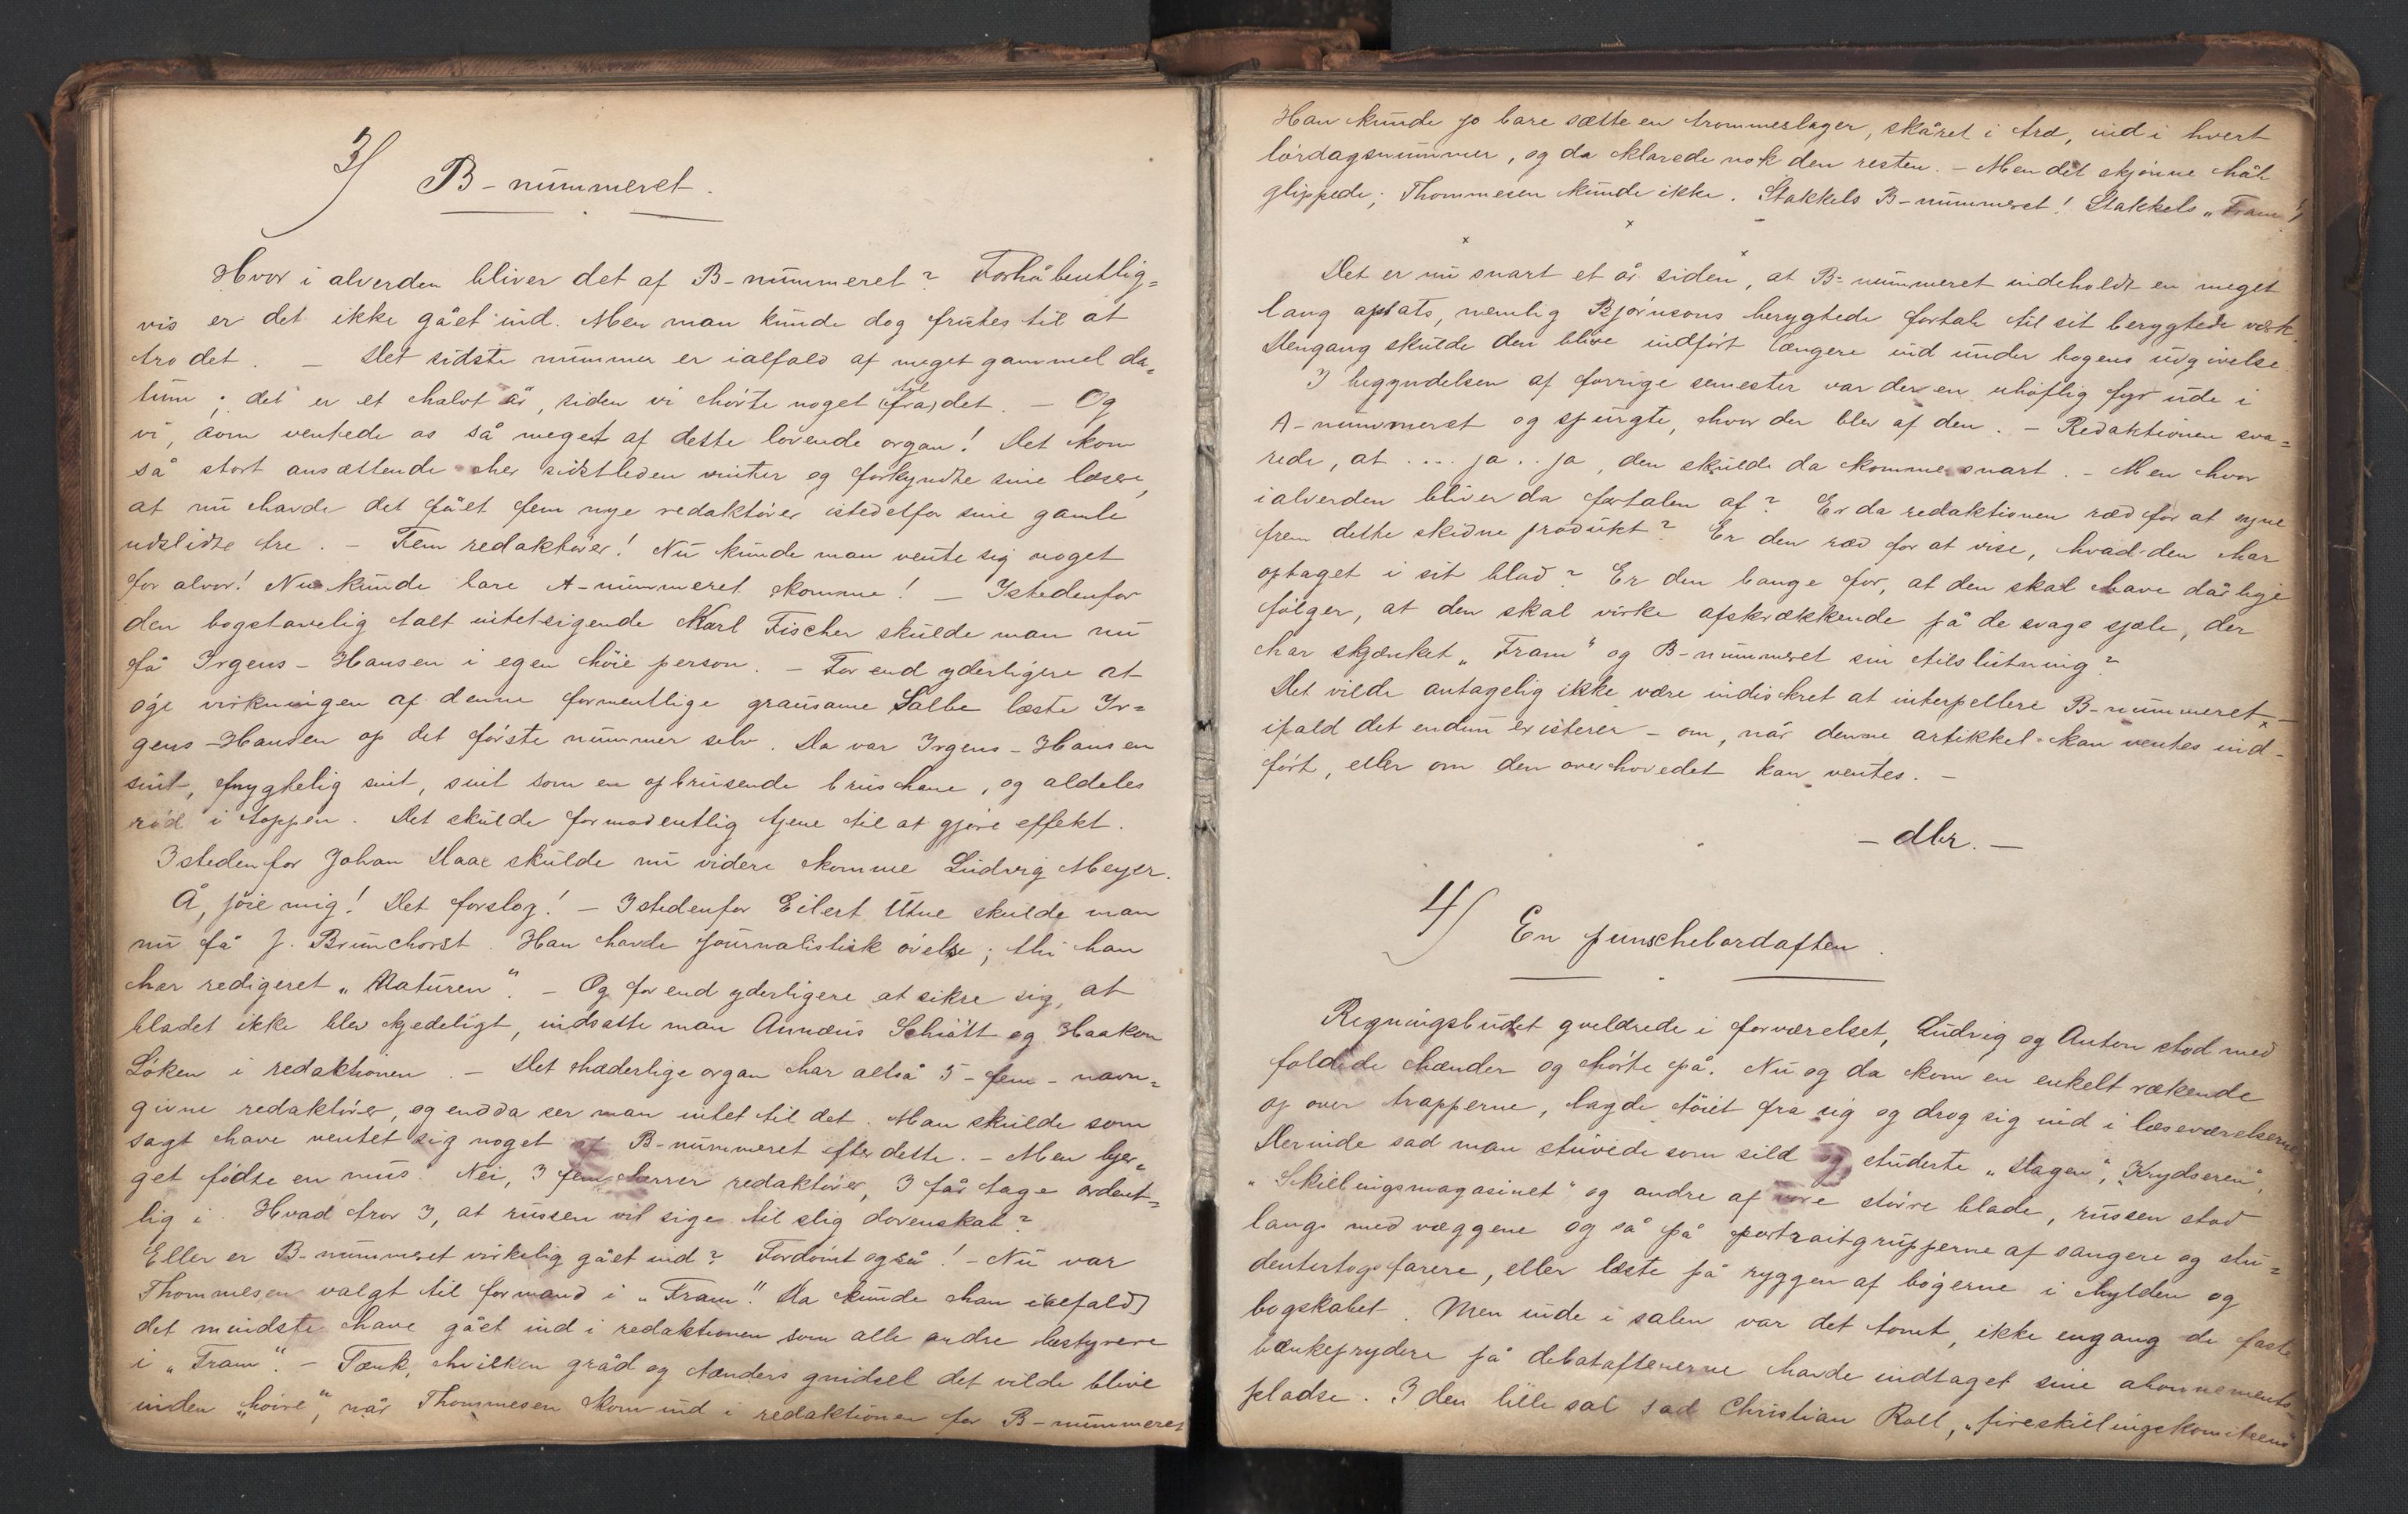 3/ B-nummeret.
Hvor i alverden bliver det af B-nummeret? Forhåbentlig=
vis er det ikke gået ind. Men man kunde dog fristes til at
tro det. — Det sidste nummer er ialfald af meget gammel da=
tum; det er et halvt år, siden vi hørte noget (fra) til det. — Og
vi, som ventede os så meget af dette lovende organ! Det kom
så stort ansættende her sidstleden vinter og forkyndte sine læsere,
at nu havde det fået fem nye redaktører istedetfor sine gamle
udslidte tre. — Fem redaktører! Nu kunde man vente sig noget
for alvor! Nu kunde bare A-nummeret komme! — Istedenfor
den bogstavelig talt intetsigende Karl Fischer skulde man nu
få Irgens-Hansen i egen høie person. — For end yderligere at
øge virkningen af denne formentlige grausame Salbe læste Ir=
gens-Hansen op det første nummer selv. Da var Irgens-Hansen
sint, frygtelig sint, sint som en opbrusende brushane, og aldeles
rød i toppen. Det skulde formodentlig tjene til at gjøre effekt.
Istedenfor Johan Daae skulde nu videre komme Ludvig Meyer.
Å, jøie mig! Det forslog! — Istedenfor Eilert Utne skulde man
nu få J. Brunchorst. Han havde journalistisk øvelse; thi han
har redigeret „Naturen“. — Og for end yderligere at sikre sig, at
bladet ikke blev kjedeligt, indsatte man Annæus Schiøtt og Haakon
Løken i redaktionen. — Det hæderlige organ har altså 5 - fem - navn=
givne redaktører, og endda ser man intet til det. Man skulde som
sagt have ventet sig noget af B-nummeret efter dette. — Men bjer=
get fødte en mus. Nei, I fem herrer redaktører, I får tage ordent=
lig i. Hvad tror I, at russen vil sige til slig dovenskab?
Eller er B-nummeret virkelig gået ind? Fordømt også! — Nu var
Thommesen valgt til formand i „Fram“. Da kunde han ialfald
det mindste have gået ind i redaktionen som alle andre bestyrere
i „Fram“. — Tænk, hvilken gråd og tænders gnidsel det vilde blive
inden „høire“, når Thommesen kom ind i redaktionen for B-nummeret
Han kunde jo bare sætte en trommeslager, skåret i træ, ind i hvert
lørdagsnummer, og da klarede nok den resten. — Men dét skjønne håb
glippede; Thommesen kunde ikke. Stakkels B-nummeret! Stakkels „Fram“!
x x x
Det er nu snart et år siden, at B-nummeret indeholdt en meget
lang opsats, nemlig Bjørnsons berygtede fortale til sit berygtede verk.
Dengang skulde den blive indført længere ind under bogens udgivelse.
I begyndelsen af forrige semester var der en uhøflig fyr ude i
A-nummeret og spurgte, hvor der blev af den. — Redaktionen sva=
rede, at .... ja .. ja, den skulde da komme snart. — Men hvor
ialverden bliver da fortalen af? Er da redaktionen ræd for at syne
frem dette skidne produkt? Er den ræd for at vise, hvad den har
optaget i sit blad? Er den bange for, at den skal have dårlige
følger, at den skal virke afskrækkende på de svage sjæle, der
har skjænket „Fram“ og B-nummeret sin tilslutning?
Det vilde antagelig ikke være indiskret at interpellere B-nummeret —
ifald det endnu existerer — om, når denne artikkel kan ventes ind-
ført, eller om den overhovedet kan ventes. —
— dbr. —
4/ En punschebordaften.
Regningsbudet gneldrede i forværelset, Ludvig og Anton stod med
foldede hænder og hørte på. Nu og da kom en enkelt rækende
op over trapperne, lagde tøiet fra sig og drog sig ind i læseværelserne.
Derinde sad man stuvede som sild og studerte „Dagen“, „Krydseren“,
„Skillingsmagasinet“ og andre af vore større blade, russen stod
langs med væggene og så på portraitgrupperne af sangere og stu=
dentertogsfarere, eller læste på ryggen af bøgerne i hylden og
bogskabet. Men inde i salen var det tomt, ikke engang de faste
bænkeprydere på debataftenerne havde indtaget sine abonnements-
pladse. I den lille sal sad Christian Roll, „fireskillingskomiteens“